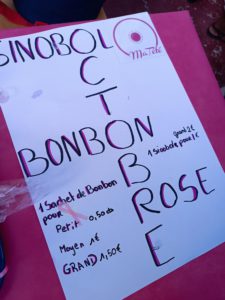 SINOBOL
C
T
BONBON
B
ROSE
E
grand 2€
1 Sinobole pour 1€
1 Sachet de Bonbon
pour
Petit 0,50
Moyen 1€
GRAND 1,50€